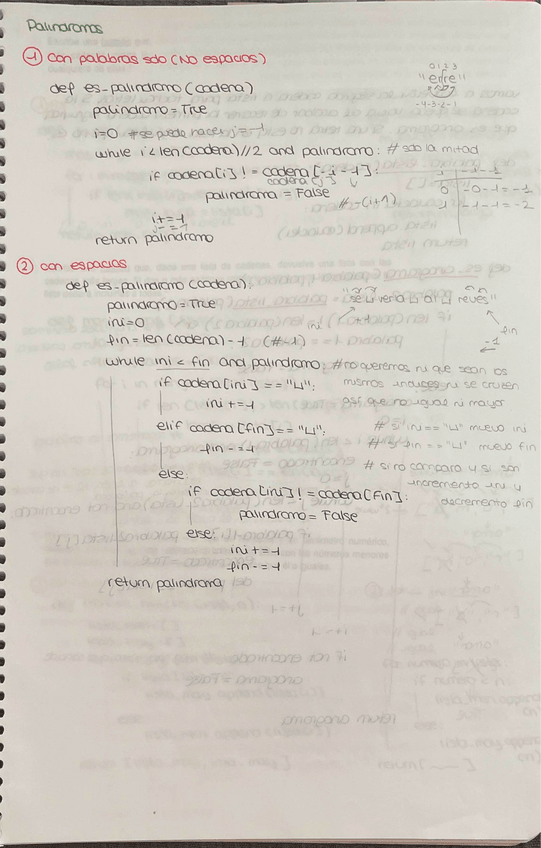 Palíndromos
1 con palabras solo (NO espacios)
0 1 2 3
"erre"
-4-3-2-1
def es-palindromo (cadena)
palindromo = True
i=0 #se puede hacer j=-1
while i < len(cadena)//2 and palindromo: # solo la mitad
if cadena[i] != cadena [-i-1]:
cadena [j]
palindroma = False
# -(i+1)
i -i-1
0 -0-1=-1
1 -1-1=-2
i+=1
j-=1
return palindromo
2 con espacios
def es-palindromo (cadena):
palindromo = True
"se⊔vería⊔al⊔revés"
ini=0
ini
fin
fin = len(cadena) - 1 (#-1)
-1
while ini < fin and palindromo: #no queremos ni que sean los
mismos índices ni se crucen
así que no igual ni mayor
if cadena[ini] == "⊔":
ini += 1
elif cadena[fin] == "⊔":
# si ini == "⊔" muevo ini
fin -= 1
# si fin == "⊔" muevo fin
else:
# si no comparo y si son
incremento ini y
decremento fin
if cadena[ini] != cadena[fin]:
palindromo = False
else:
ini += 1
fin -= 1
return palindroma